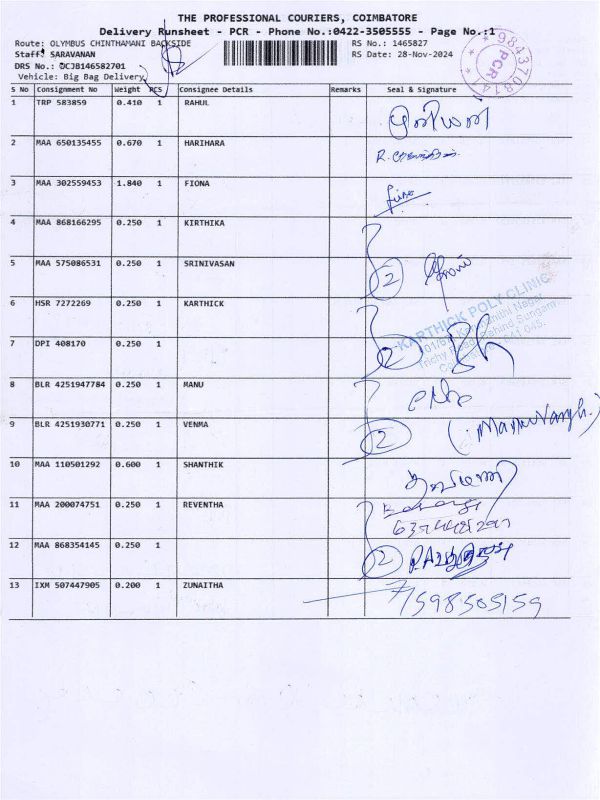 THE PROFESSIONAL COURIERS, COIMBATORE
Delivery Runsheet - PCR - Phone No.:0422-3505555 - Page No.:1
Route: OLYMBUS CHINTHAMANI BACKSIDE RS No.: 1465827
Staff: SARAVANAN RS Date: 28-Nov-2024
DRS No.: DCJB146582701
Vehicle: Big Bag Delivery
984370814
PCR
S No Consignment No Weight PCS Consignee Details Remarks Seal & Signature
1 TRP 583859 0.410 1 RAHUL
2 MAA 650135455 0.670 1 HARIHARA
3 MAA 302559453 1.840 1 FIONA
4 MAA 868166295 0.250 1 KIRTHIKA
5 MAA 575086531 0.250 1 SRINIVASAN 2
6 HSR 7272269 0.250 1 KARTHICK
KARTHICK POLY CLINIC
7 DPI 408170 0.250 1 2
8 BLR 4251947784 0.250 1 MANU
9 BLR 4251930771 0.250 1 VENMA 2
10 MAA 110501292 0.600 1 SHANTHIK
11 MAA 200074751 0.250 1 REVENTHA
12 MAA 868354145 0.250 1 2
13 IXM 507447905 0.200 1 ZUNAITHA 7598505159